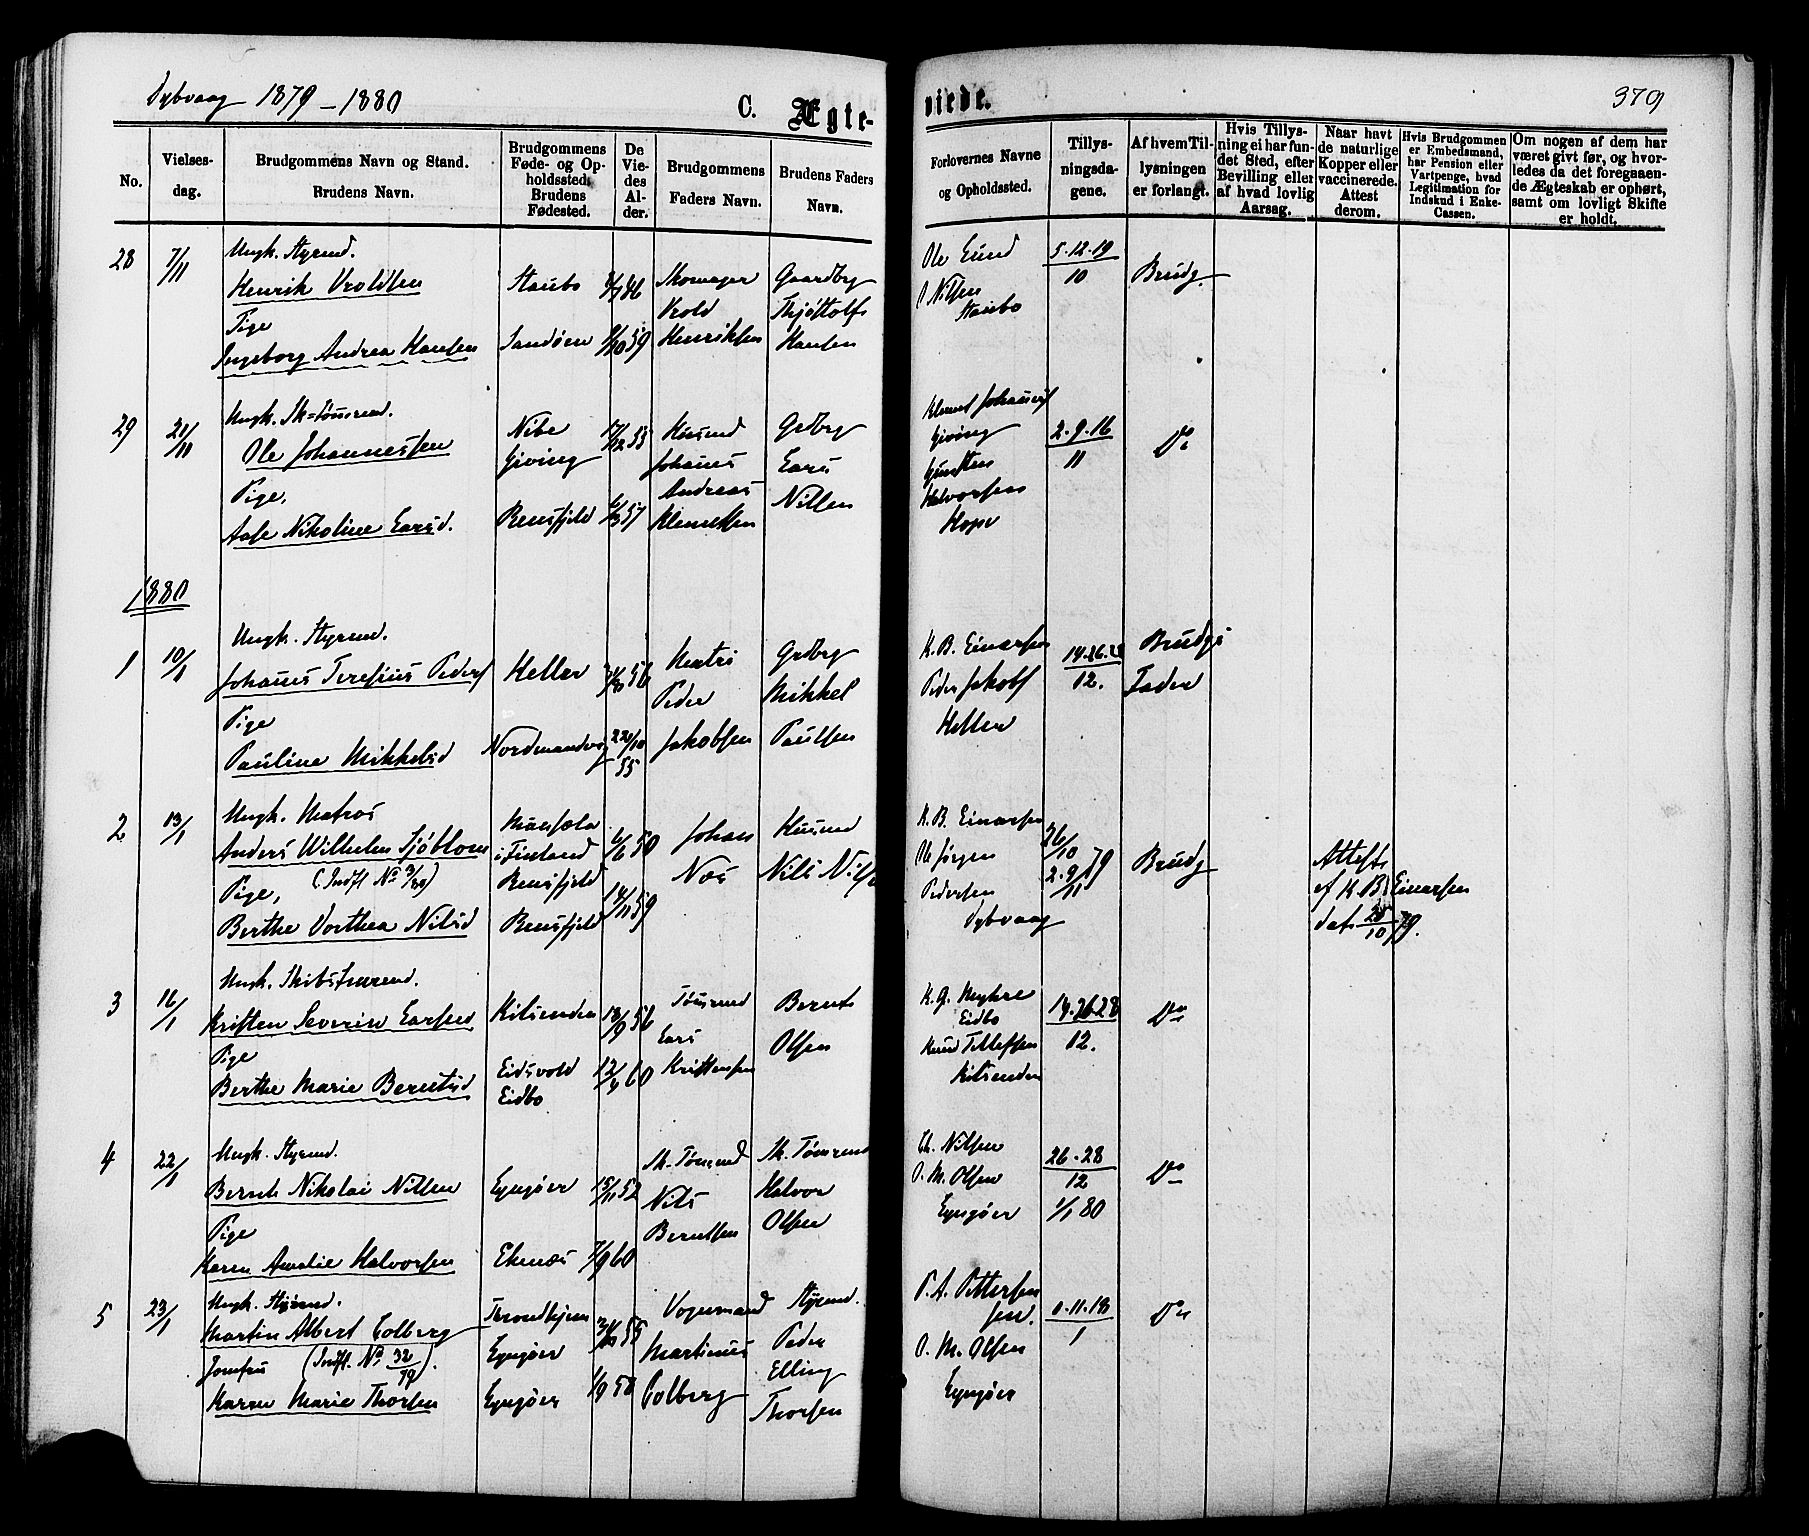 Dybvaag 1879 – 1880
C. Ægte-
viede.
379
No.
Vielses-
dag.
Brudgommens Navn og Stand.
Brudens Navn.
Brudgommens
Føde- og Op-
holdssted.
Brudens
Fødested.
De
Vie-
des
Al-
der.
Brudgommens
Faders Navn.
Brudens Faders
Navn.
Forlovernes Navne
og Opholdssted.
Tillys-
ningsda-
gene.
Af hvem Til-
lysningen
er forlangt.
Hvis Tillys-
ning ei har fun-
det Sted, efter
Bevilling eller
af hvad lovlig
Aarsag.
Naar havt
de naturlige
Kopper eller
vaccinerede.
Attest
derom.
Hvis Brudgommen
er Embedsmand,
har Pension eller
Vartpenge, hvad
Legitimation for
Indskud i Enke-
Cassen.
Om nogen af dem har
været givt før, og hvor-
ledes da det foregaaen-
de Ægteskab er ophørt,
samt om lovligt Skifte
er holdt.
28
7/11
Ungk. Styrmd.
Henrik Vroldsen
Pige
Ingeborg Andrea Hansen
Staubo
Sandøen
Skomager
Vrold
Henriksen
Gaardbrg
Thjøstolf
Hansen
Ole Lund
Nilsen
Staubo
5.12.19
10
Brudg.
29
21/11
Ungk. Sk=Tømrmd.
Ole Johannessen
Pige,
Aase Nikoline Larsd.
Nibe
Giving
Rensfjeld
17/12 55
6/3 57
Husmd
Johanes
Andreas
Klemetsen
Grdbrg
Lars
Nilsen
Giving
Halvorsen
Hope
2.9.16
11
Do
1880
1
10/1
Ungk. Styrmd.
Johanes Teresius Peders
Pige
Pauline Mikkelsd
Heller
Nordmandvig
56
22/10
55
Peder
Jakobsen
Grdbrg
Mikkel
Paulsen
K. B. Einarsen
Peder Jakobs
Heller
14.26.28
12.
Brudgs
Fader
2
13/1
Ungk. Matros
Anders Wilhelm Sjøblom
(Indfl No 3/80)
Pige,
Berthe Dorthea Nilsd
i Finland
Rensfjeld
Rensfjeld
6/6 50
14/11 59
Johan
Næs
Husmd
Nils Nils
K. B. Einarsen
Ole Jørgen
Pedersen
Dybvaag
26/10
2.9/11 79
Brudg
Attest
af K. B. Einarsen
dat. 25/10 79.
3
16/1
Ungk. Skibstmrmd.
Kristen Severin Larsen
Pige
Berthe Marie Berntsd
Kilsenden
Eidsvold
Eidbo
18/9 56
12/4 60
Tømrmd
Lars
Kristensen
Bernt
Olsen
Eidbo
Knud Tellefsen
Kilsenden
14.26.28
12.
Do
4
22/1
Ungk. Styrmd.
Bernt Nikolai Nilsen
Pige
Karen Amalie Halvorsen
Lyngøer
Ekenæs
15/11 52
7/9 60
Sk. Tømrmd
Nils
Berntsen
Sk. Tømrmd
Halvor
Olsen
Ch. Nilsen
O. M. Olsen
Lyngøer
26 - 28
12
1/1 80
Do
5
23/1
Ungk. Styrmd.
Martin Albert Colberg
Jomfru (Indfl. No 32/79).
Karen Marie Thorsen
Throndhjem
Lyngøer
Lyngøer
55
1/9 58
Vognmand
Martinus
Colberg
Styrmd.
Peder
Elling
Thorsen
P. A. Pettersen
sen.
O. M. Olsen
Lyngøer
6.11.18
1
Do